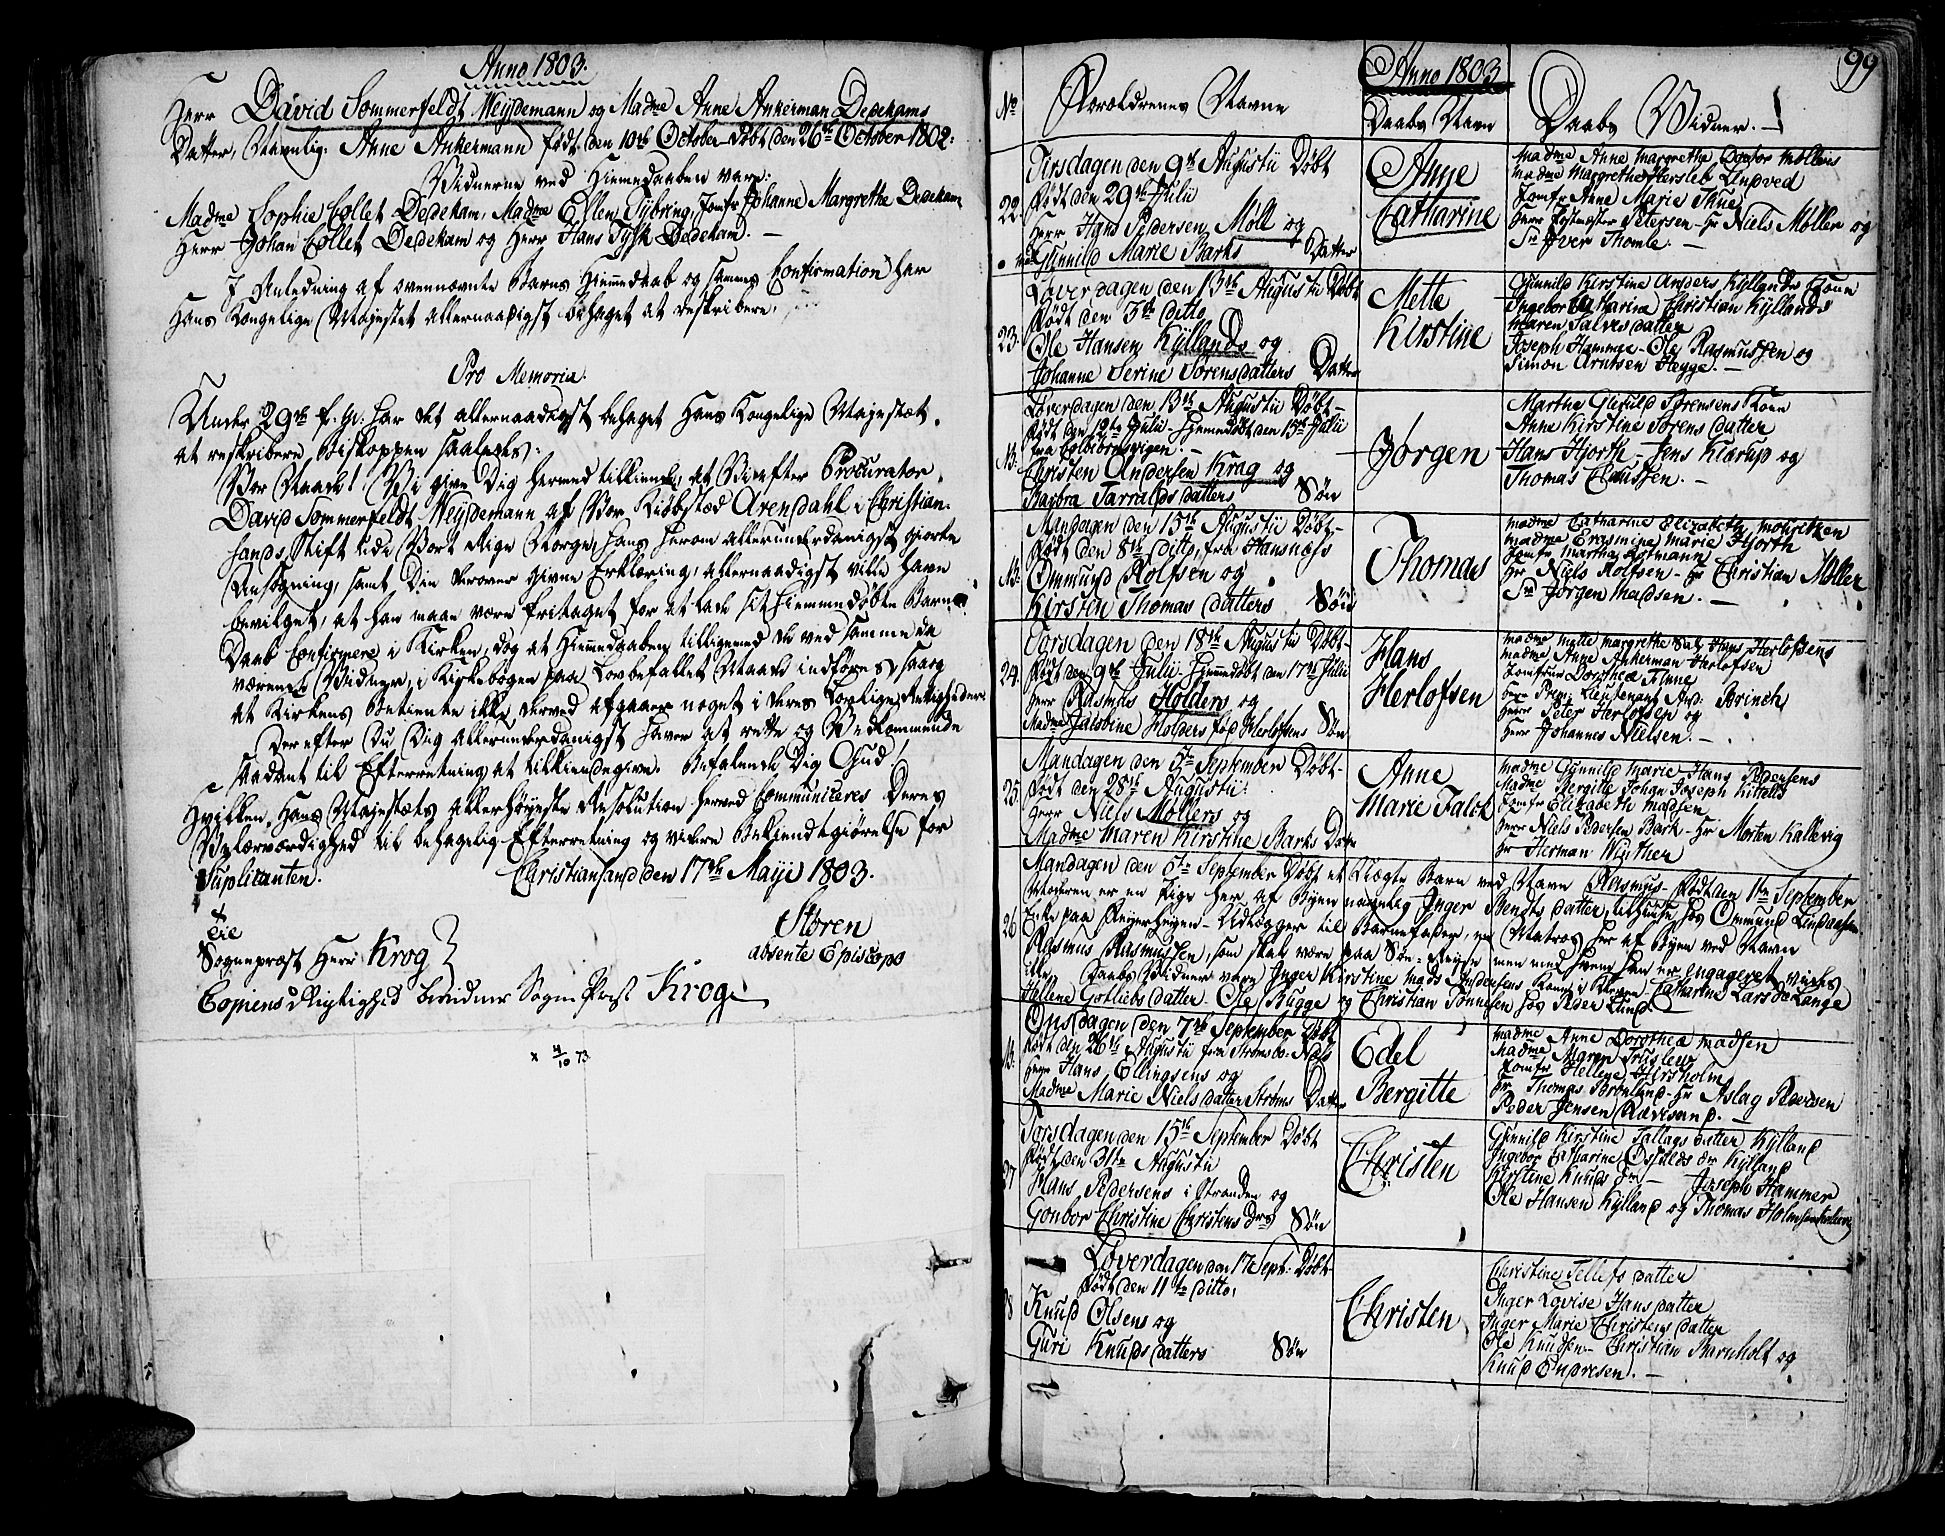 Anno 1803.
Herr David Sommerfeldt Weÿdemann og Madme Anne Ankerman Dedekams
Datter, Navnlig: Anne Ankermann født den 10de October - døbt den 26de October 1802:
Vidnerne ved Hiemedaaben vare:
Madme Sophie Collet Dedekam, Madme Ellen Dÿbring, Jomfr Johanne Margrethe Dedekam
Herr Johan Collet Dedekam og Herr Hans Tÿsk Dedekam. —
I Anledning af ovennævnte Barns Hiemedaab og sammes Confirmation har
Hans Kongelige Majestet allernaadigst behaget at reskribere.
Pro Memoria.
Under 29de f: M: har det allernaadigst behaget Hans Kongelige Majestæt
at reskribere Biskoppen saaledes:
Vor Naade! Vi give Dig hermed tilkiende, at Vi efter Procurator
David Sommerfeldt Weÿdemann af Vor Kiøbstæd Arendahl i Christian-
sands Stift udi Vort Rige Norge, hans herom allerunderdanigst giorte
Ansøgning, samt Din derover givne Erklæring, allernaadigst ville have
bevilget, at han maae være fritaget for at lade sit hiemmedøbte Barns
Daab Confirmere i Kirken, dog at Hiemedaaben tilligemed de ved samme da
værende Vidner, i Kirkebogen paa Lovbefallet Maade indføres, saa og
at Kirkens Betiente ikke derved afgaaer noget i deres Lovlige Rettigheder.
Derefter Du Dig allerunderdanigst haver at rette og Vedkommende
saadant til Efterretning at tilkiendegive. Befalende Dig Gud!
Hvilken Hans Majestæts allerhøyeste Resolution herved Communiceres Deres
Velærværdighed til behagelig Efterretning og videre Bekiendtgiørelse for
Suplicanten. Christiansand den 17de Maÿi 1803.
Støren
absente Episcopo
Til
Sognepræst Herr Krog
Copiens Rigtighed bevidner Sogne Præst Krog
x 4/10 73.
99
Anno 1803
No Forældrenes Navne Daabs Navn Daabs Vidner. —
22. Tirsdagen den 9de Augusti Døbt
Født den 29de Julii
Herr Hans Pedersen Møll og
Gunnild Marie Barks Datter
Anne
Catharine
Madme Anne Margrethe Doctor Møllers
Madme Margrethe Hersleb Lindved
Jomfr Anne Marie Thue
Herr Postmester Petersen - Hr Niels Møller og
Sr Iver Thomle. —
23. Løverdagen den 13de Augusti Døbt
Født den 3de ditto
Ole Hansen Kÿllands og
Johanne Serine Sørensdatters Datter
Mette
Kirstine
Gunnild Kirstine Anders Kÿllands Kone
Ingebor Catharina Christian Kÿllands
Maren Salvesdatter
Joseph Hammer - Ole Rasmussen og
Simon Arntsen Hegge. —
NB. Løverdagen den 13de Augusti Døbt
Født den 12te Julii - Hiemedøbt den 15de Julii
fra Colbiørnsvigen. —
Christen Andersen Krag og
Barbra Tarraldsdatters Søn
Jørgen
Martha Sørensens Kone
Anne Kirstine Sørensdatter
Hans Hjorth - Jens Klarup og
Thomas Claussen. —
NB. Mandagen den 15de Augusti Døbt
Født den 8de ditto, fra Hansnæs
Ommund Rolfsen og
Kirsten Thomasdatters Søn
Thomas
Madme Catharine Elizabeth Mouritzen
Madme Erasmine Marie Hjorth
Jomfr Martha Rotmann
Hr Niels Rolfsen - Hr Christian Møller
Sr Jørgen Madsen. —
24. Torsdagen den 18de Augusti Døbt
Født den 9de Julii Hiemedøbt den 17de Julii
Herr Rasmus Holders og
Madme Jacobine Holders fød Herlofsens Søn
Hans
Herlofsen
Madme Mette Margrethe Sal: Hans Herlofsens
Madme Anne Ankerman Herlofsen
Jomfrue Dorothea Thue
Herr Prem: Lieutenant And: Brinch
Herr Peter Herlofsen og
Herr Johannes Nielsen. —
25. Mandagen den 5te September Døbt
Født den 28de Augusti:
Herr Niels Møllers og
Madme Maren Kirstine Barks Datter
Anne
Marie Falck
Madme Gunnild Marie Hans Pedersens
Madme Bergitte Johan Joseph Kitells
Jomfr Elizabeth Madsen
Herr Niels Pedersen Bark - Hr Morten Kallevig
Hr Herman Winther
26. Mandagen den 5te September Døbt et Uægte Barn ved Navn Rasmus - Født den 1ste September
Moderen er en Pige her af Byen navnlig Inger Bengtsdatter, tilhuse hos Ommund Lindaasens
Enke paa - Udlægger til Barnefader, en Matros her af Byen ved Navn
Rasmus Rasmussen, som skal være paa Søe-Reyse men med hvem han er engageret vides
ikke. Daabs Vidner vare Inger Kirstine Mads Andersens Kone i - Catharine Lars de Lange
Hallene Gotliebsdatter - Ole Bugge og Christian Tønnesen hos Peder Lund. —
NB. Onsdagen den 7de September Døbt
Født den 26de Augusti fra Strømsboe-Næs
Herr Hans Ellingsens og
Madme Marie Nielsdatter Strøms Datter
Edel
Bergitte
Madme Anne Dorothea Madsen
Madme Maren Truslew
Jomfr Hellene Hirsholm
Hr Thomas Brønlund - Hr Aslag Pedersen
Peder Jensen Rævesand. —
27 Torsdagen den 15de September Døbt
Født den 31te Augusti
Hans Pedersens i Stranden og
Gonbor Christine Christensdrs Søn
Christen
Gunnild Kirstine Tallagsdatter Kÿlland
Ingebor Catharine Osuldsdr Kÿlland
Kirstine Knudsdr — Joseph Hammer
Ole Hansen Kÿlland og Thomas Holmsen
28 Løverdagen den 17 Sept: Døbt
Født den 11te ditto,
Knud Olsens og
Guri Knudsdatters Søn
Christen
Christine Tellefsdatter
Inger Lovise Hansdatter
Inger Marie Christensdatter
Ole Knudsen - Christian Barnholt og
Knud Endresen. —